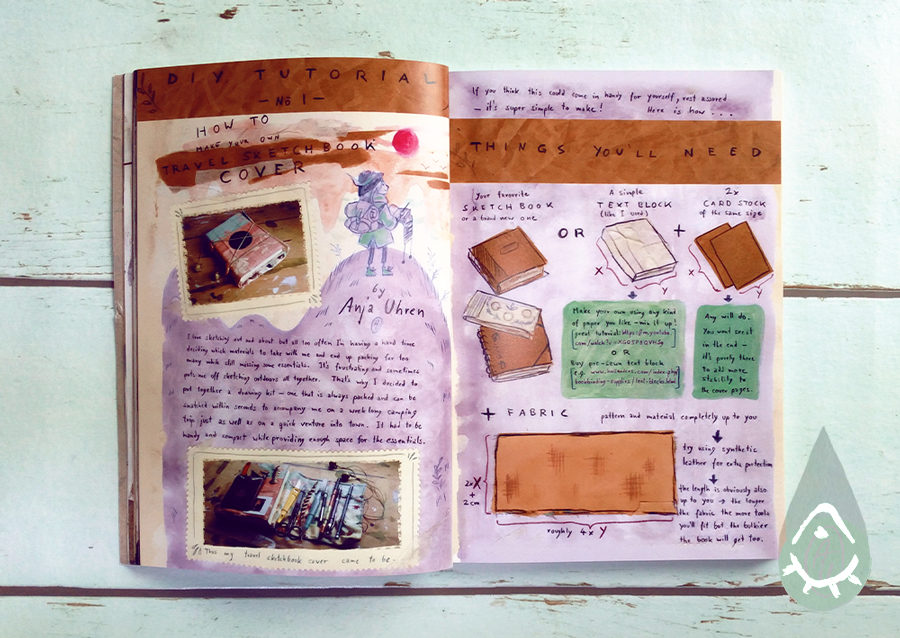 DIY TUTORIAL
— No 1 —
HOW TO
MAKE YOUR OWN
TRAVEL SKETCHBOOK
COVER
by
Anja Uhren
I love sketching out and about but all too often I'm having a hard time
deciding which materials to take with me and end up packing far too
many while still missing some essentials. It's frustrating and sometimes
puts me off sketching outdoors all together. That's why I decided to
put together a drawing kit – one that is always packed and can be
snatched within seconds to accompany me on a week long camping
trip just as well as on a quick venture into town. It had to be
handy and compact while providing enough space for the essentials.
Thus my travel sketchbook cover came to be.
If you think this could come in handy for yourself, rest assured
– it's super simple to make! Here is how...
THINGS YOU'LL NEED
Your favourite
SKETCHBOOK
or a brand new one
OR
A simple
TEXT BLOCK
(like I used)
+
2x
CARD STOCK
of the same size
X
Y
X
Y
Make your own using any kind
of paper you like – mix it up!
great tutorial: https://m.youtube.
OR
Buy pre-sewn text block
bookbinding-supplies/text-blocks.html
Any will do.
You wont see it
in the end –
it's purely there
to add more
stability to
the cover pages.
+ FABRIC
pattern and material completely up to you
try using synthetic
leather for extra protection
2x X
+
2 cm
the length is obviously also
up to you → the longer
the fabric the more tools
you'll fit but the bulkier
the book will get too.
roughly 4x Y